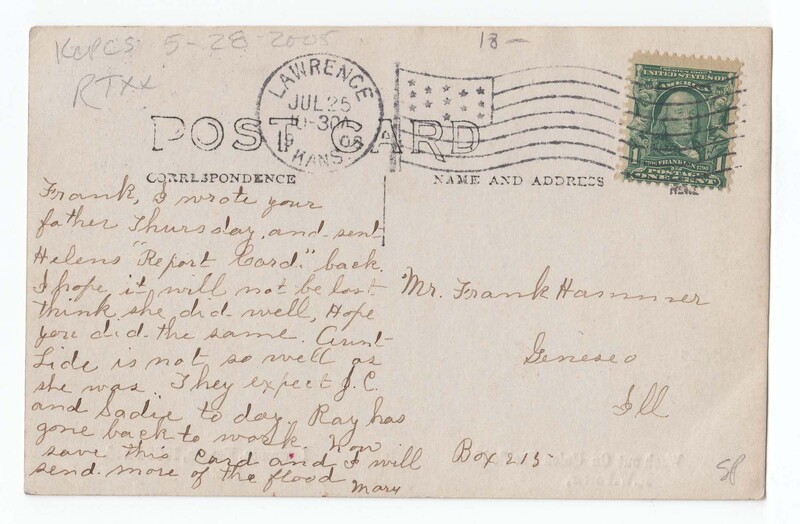 KCPCS 5-28-2005
RTXX
18-
LAWRENCE
JUL 25
10-30A
1908
KANS.
UNITED STATES OF
AMERICA
1 1
POSTAGE
ONE CENT
HERE
POST CARD
CORRESPONDENCE
NAME AND ADDRESS
Frank, I wrote your
father Thursday and sent
Helens "Report Card." back.
I hope it will not be lost
think she did well, Hope
you did the same. Aunt
Lide is not so well as
she was. They expect J.C.
and Sadie to day. Ray has
gone back to work. Now
save this card and I will
send more of the flood
Mary
Mr. Frank Hammer
Geneseo
Ill
Box 215
SP